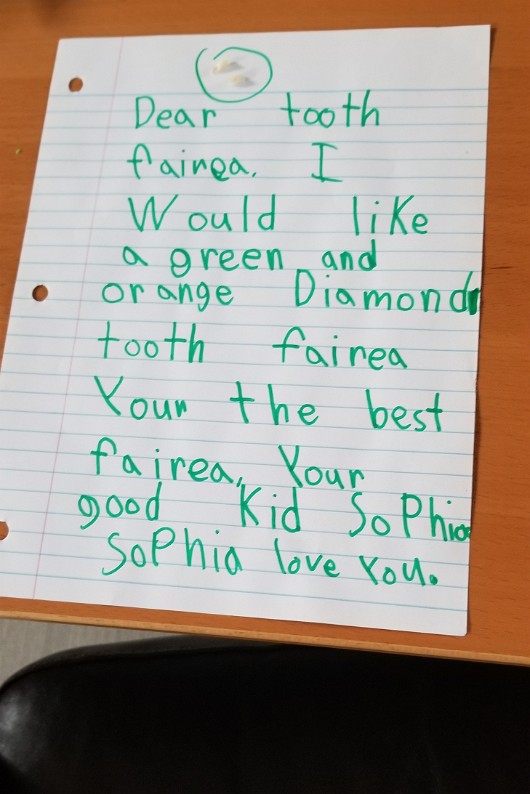 Dear tooth
fairea. I
Would like
a green and
orange Diamond
tooth fairea
Your the best
fairea, Your
good Kid Sophia
Sophia love You.